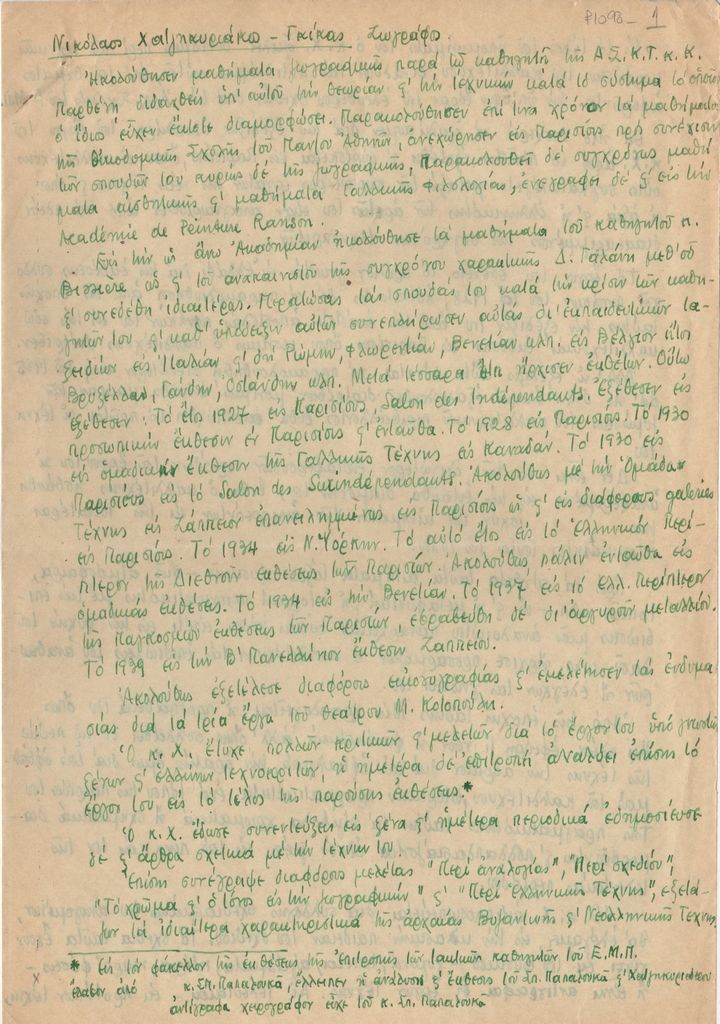 P1098-1
Νικόλαος Χατζηκυριάκο - Γκίκας ζωγράφος.
Ἠκολούθησεν μαθήματα ζωγραφικῆς παρά τῷ καθηγητῇ τῆς Α.Σ.Κ.Τ. κ. Κ.
Παρθένη διδαχθείς ὑπ' αὐτοῦ τήν θεωρίαν ϗ τήν τεχνικήν κατά τό σύστημα τό ὁποῖον
ὁ ἴδιος εἶχεν ἔκτοτε διαμορφώσει. Παρακολούθησεν ἐπί τινα χρόνον τά μαθήματα
τῆς Οἰκοδομικῆς Σχολῆς τοῦ Παν/ου Ἀθηνῶν, ἀνεχώρησεν εἰς Παρισίους πρός συνέχισιν
τῶν σπουδῶν του κυρίως δέ τῆς ζωγραφικῆς, παρακολουθεῖ δέ συγχρόνως μαθή
ματα αἰσθητικῆς ϗ μαθήματα Γαλλικῆς Φιλολογίας, ἐνεγράφει δέ ϗ εἰς τήν
Académie de Peinture Ranson.
Εἰς τήν ὡς ἄνω Ἀκαδημίαν ἠκολούθησε τά μαθήματα τοῦ καθηγητοῦ κ.
Bissiere ὡς ϗ τοῦ ἀνακαινιστοῦ τῆς συγχρόνου χαρακτικῆς Δ. Γαλάνη μεθ' οὗ
ϗ συνεδέθη ἰδιαιτέρως. Περατώσας τάς σπουδάς του κατά τήν κρίσιν τῶν καθη-
γητῶν του ϗ καθ' ὑπόδειξιν αὐτῶν συνεπλήρωσεν αὐτάς δι' ἐκπαιδευτικῶν τα-
ξειδίων εἰς Ἰταλίαν ϗ δή Ρώμην, Φλωρεντίαν, Βενετίαν κλπ. εἰς Βέλγιον ἤτοι
Βρυξέλλας, Γάνδην, Ὀστάνδην κλπ. Μετά τέσσαρα ἔτη ἤρχισεν ἐκθέτων. Οὕτω
ἐξέθεσεν. Τό ἔτος 1927 εἰς Παρισίους, Salon des Indépendants. Ἐξέθεσεν εἰς
προσωπικήν ἔκθεσιν ἐν Παρισίοις ϗ ἐνταῦθα. Τό 1928 εἰς Παρισίους. Τό 1930
εἰς ὁμαδικήν ἔκθεσιν τῆς Γαλλικῆς Τέχνης εἰς Καναδάν. Τό 1930 εἰς
Παρισίους εἰς τό Salon des Surindépendants. Ἀκολούθως μέ τήν Ὁμάδα
Τέχνης εἰς Ζάππειον ἐπανειλημμένως εἰς Παρισίους ὡς ϗ εἰς διαφόρους galeries
εἰς Παρισίους. Τό 1934 εἰς Ν. Υόρκην. Τό αὐτό ἔτος εἰς τό Ἑλληνικόν Περί-
πτερον τῆς Διεθνοῦς ἐκθέσεως τῶν Παρισίων. Ἀκολούθως πάλιν ἐνταῦθα εἰς
ὁμαδικάς ἐκθέσεις. Τό 1934 εἰς τήν Βενετίαν. Τό 1937 εἰς τό ἑλλ. Περίπτερον
τῆς παγκοσμίου ἐκθέσεως τῶν Παρισίων, ἐβραβεύθη δέ δι' ἀργυροῦ μεταλλείου.
Τό 1939 εἰς τήν Β' Πανελλήνιον ἔκθεσιν Ζαππείου.
Ἀκολούθως ἐξετέλεσε διαφόρους εἰκονογραφίας ϗ ἐμελέτησεν τάς ἐνδυμα
σίας διά τά τρία ἔργα τοῦ θεάτρου Μ. Κοτοπούλη.
Ὁ κ. Χ. ἔτυχε πολλῶν κριτικῶν ϗ μελετῶν διά τό ἔργον του ὑπό γνωστῶν
ξένων ϗ ἑλλήνων τεχνοκριτῶν, ἡ ἡμετέρα δέ ἐπιτροπή ἀναλύει ἐπίσης τό
ἔργον του εἰς τό τέλος τῆς παρούσης ἐκθέσεως*
Ὁ κ. Χ. ἔδωσε συνεντεύξεις εἰς ξένα ϗ ἡμέτερα περιοδικά ἐδημοσίευσε
δέ ϗ ἄρθρα σχετικά μέ τήν τέχνην του.
Ἐπίσης συνέγραψε διαφόρους μελέτας "Περί ἀναλογίας", "Περί σχεδίου",
"Τό χρῶμα ϗ ὁ τόνος εἰς τήν ζωγραφικήν" ϗ "Περί Ἑλληνικῆς Τέχνης", ἐξετά-
ζων τά ἰδιαίτερα χαρακτηριστικά τῆς ἀρχαίας Βυζαντινῆς ϗ Νεοελληνικῆς Τέχνης
* Εἰς τόν φάκελλον τῆς ἐκθέσεως τῆς ἐπιτροπῆς τῶν τακτικῶν καθηγητῶν τοῦ Ε.Μ.Π.
ἔλαβον ἀπό κ. Σπ. Παπαλουκᾶ, ἔλλειπεν ἡ ἀνάλυσις ϗ ἔκθεσις τοῦ Σπ. Παπαλουκᾶ ϗ Χατζηκυριάκου
ἀντίγραφα χειρογράφου εἶχε τοῦ κ. Σπ. Παπαλουκᾶ